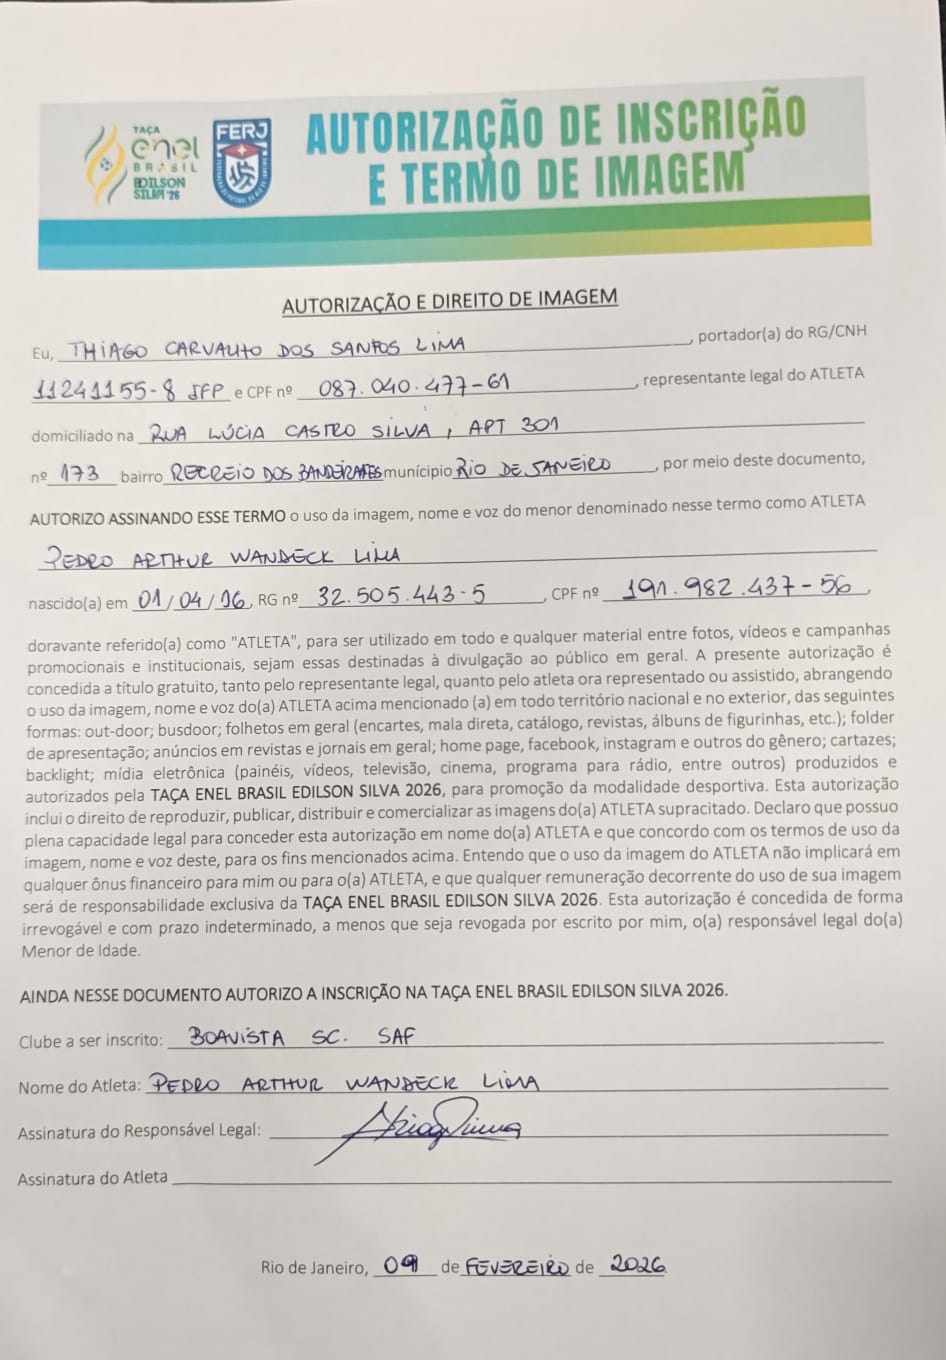 TAÇA
enel
BRASIL
EDILSON
SILVA '26
FERJ
AUTORIZAÇÃO DE INSCRIÇÃO
E TERMO DE IMAGEM
AUTORIZAÇÃO E DIREITO DE IMAGEM
Eu, THIAGO CARVALHO DOS SANTOS LIMA, portador(a) do RG/CNH
11241155-8 IFP e CPF nº 087.040.477-61, representante legal do ATLETA
domiciliado na RUA LÚCIA CASTRO SILVA, APT 301
nº 173 bairro RECREIO DOS BANDEIRANTES munícipio RIO DE JANEIRO, por meio deste documento,
AUTORIZO ASSINANDO ESSE TERMO o uso da imagem, nome e voz do menor denominado nesse termo como ATLETA
PEDRO ARTHUR WANDECK LIMA
nascido(a) em 01/04/16, RG nº 32.505.443-5, CPF nº 191.982.437-56,
doravante referido(a) como "ATLETA", para ser utilizado em todo e qualquer material entre fotos, vídeos e campanhas
promocionais e institucionais, sejam essas destinadas à divulgação ao público em geral. A presente autorização é
concedida a título gratuito, tanto pelo representante legal, quanto pelo atleta ora representado ou assistido, abrangendo
o uso da imagem, nome e voz do(a) ATLETA acima mencionado (a) em todo território nacional e no exterior, das seguintes
formas: out-door; busdoor; folhetos em geral (encartes, mala direta, catálogo, revistas, álbuns de figurinhas, etc.); folder
de apresentação; anúncios em revistas e jornais em geral; home page, facebook, instagram e outros do gênero; cartazes;
backlight; mídia eletrônica (painéis, vídeos, televisão, cinema, programa para rádio, entre outros) produzidos e
autorizados pela TAÇA ENEL BRASIL EDILSON SILVA 2026, para promoção da modalidade desportiva. Esta autorização
inclui o direito de reproduzir, publicar, distribuir e comercializar as imagens do(a) ATLETA supracitado. Declaro que possuo
plena capacidade legal para conceder esta autorização em nome do(a) ATLETA e que concordo com os termos de uso da
imagem, nome e voz deste, para os fins mencionados acima. Entendo que o uso da imagem do ATLETA não implicará em
qualquer ônus financeiro para mim ou para o(a) ATLETA, e que qualquer remuneração decorrente do uso de sua imagem
será de responsabilidade exclusiva da TAÇA ENEL BRASIL EDILSON SILVA 2026. Esta autorização é concedida de forma
irrevogável e com prazo indeterminado, a menos que seja revogada por escrito por mim, o(a) responsável legal do(a)
Menor de Idade.
AINDA NESSE DOCUMENTO AUTORIZO A INSCRIÇÃO NA TAÇA ENEL BRASIL EDILSON SILVA 2026.
Clube a ser inscrito: BOAVISTA SC. SAF
Nome do Atleta: PEDRO ARTHUR WANDECK LIMA
Assinatura do Responsável Legal:
Assinatura do Atleta
Rio de Janeiro, 09 de FEVEREIRO de 2026